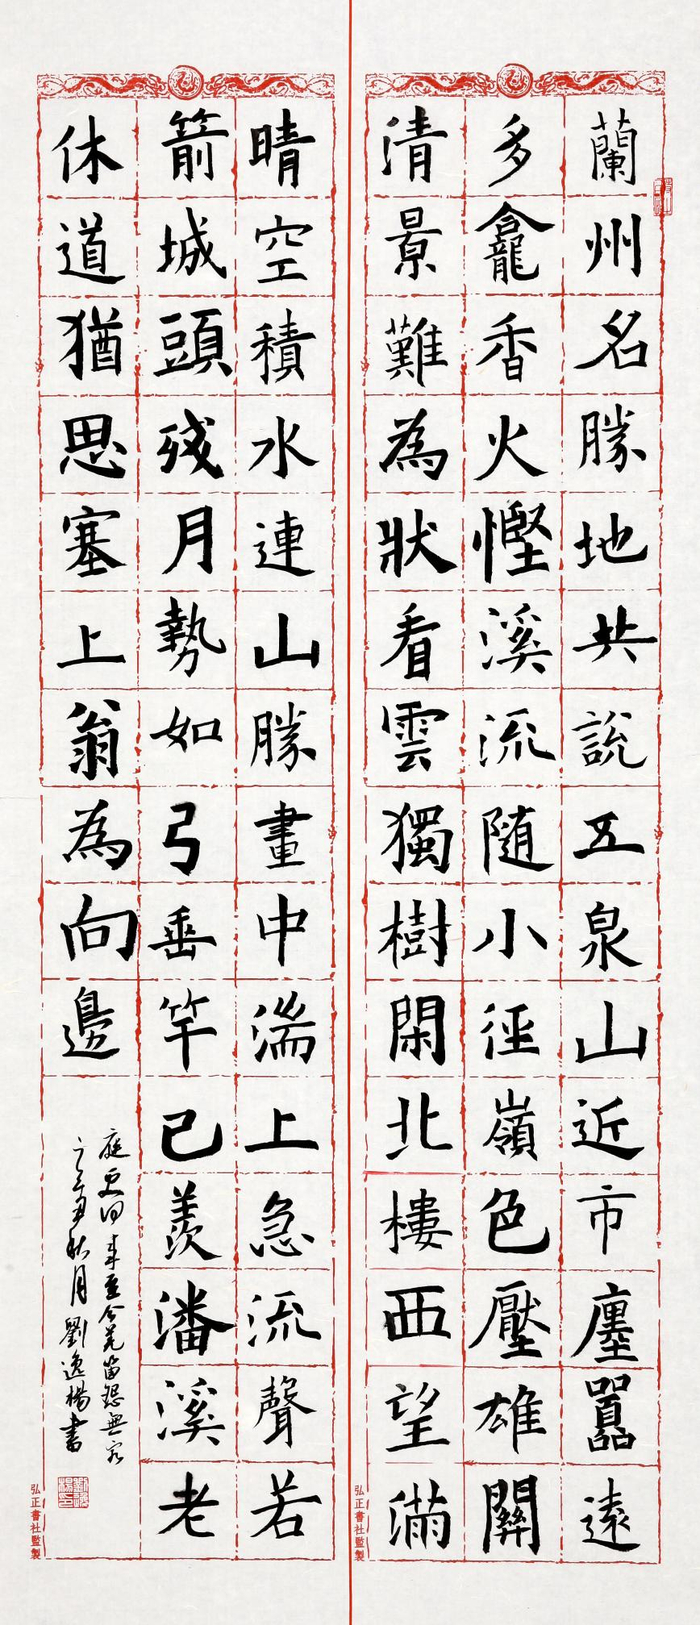 蘭州名勝地共說五泉山近市廛囂遠
多龕香火慳溪流隨小徑嶺色壓雄關
清景難為狀看雲獨樹閑北樓西望滿
晴空積水連山勝畫中湍上急流聲若
箭城頭殘月勢如弓垂竿已羨潘溪老
休道猶思塞上翁為向邊
庭更回車至今羌笛怨無窮
辛丑秋月劉逸楊書
弘正書社監製
弘正書社監製